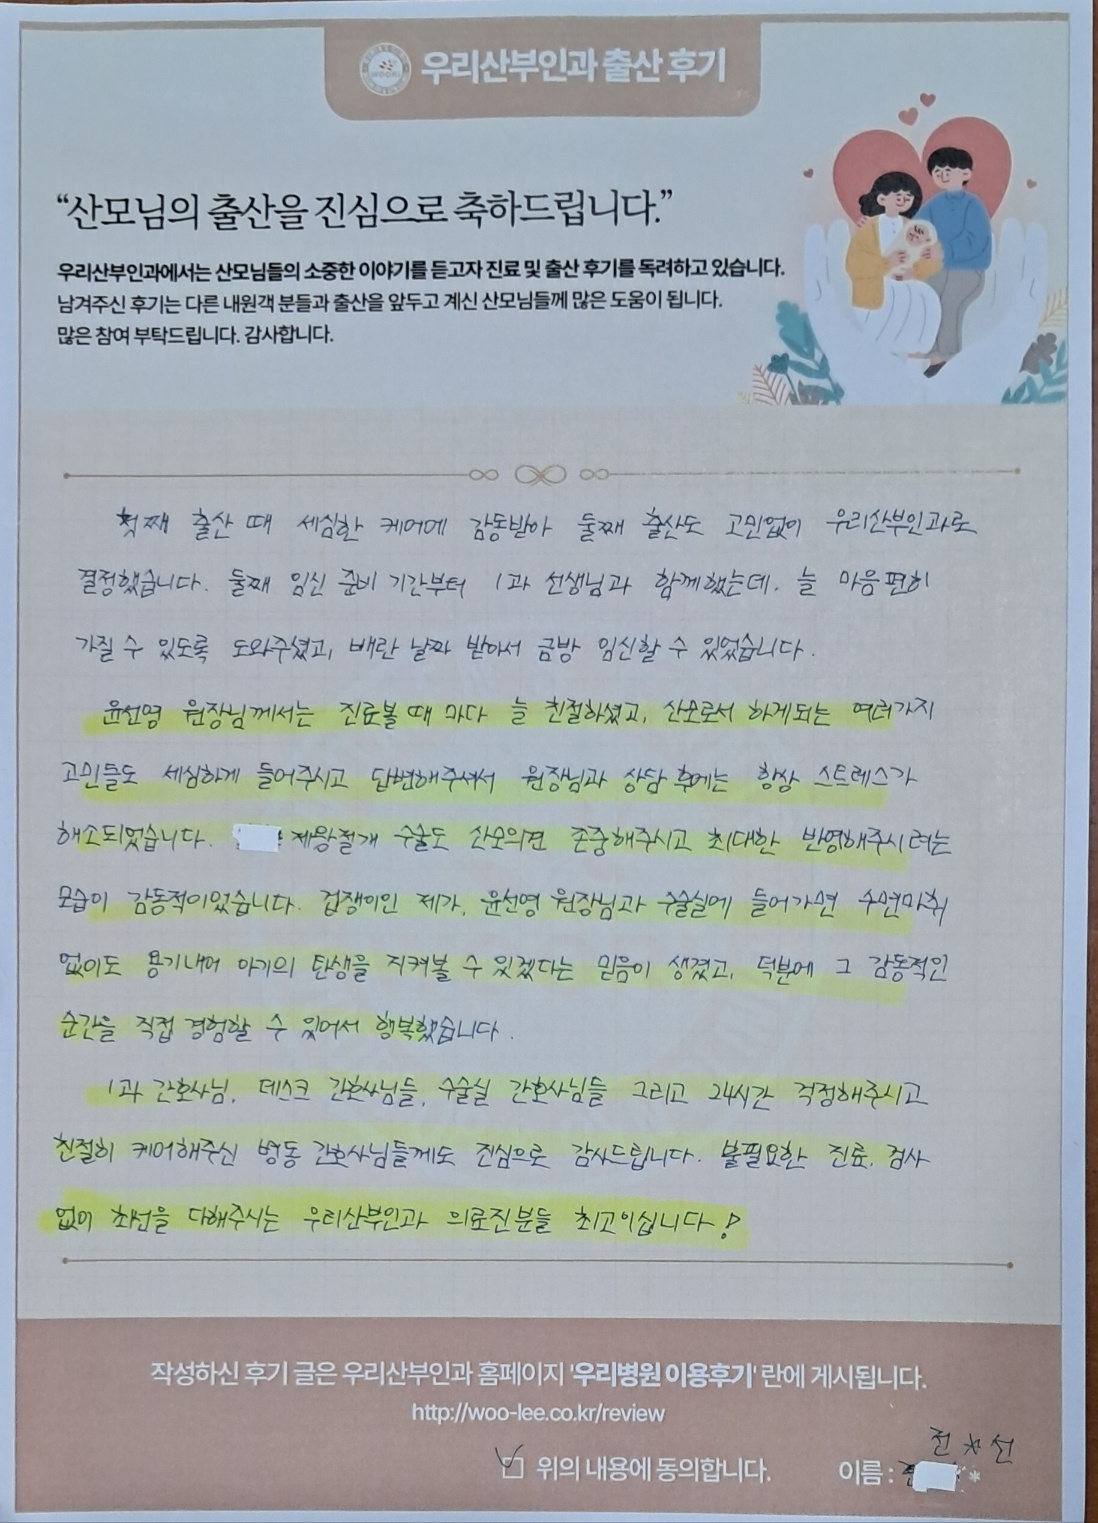 우리산부인과 출산 후기
“산모님의 출산을 진심으로 축하드립니다.”
우리산부인과에서는 산모님들의 소중한 이야기를 듣고자 진료 및 출산 후기를 독려하고 있습니다.
남겨주신 후기는 다른 내원객 분들과 출산을 앞두고 계신 산모님들께 많은 도움이 됩니다.
많은 참여 부탁드립니다. 감사합니다.
첫째 출산 때 세심한 케어에 감동받아 둘째 출산도 고민없이 우리산부인과로
결정했습니다. 둘째 임신 준비 기간부터 1과 선생님과 함께했는데, 늘 마음 편히
가질 수 있도록 도와주셨고, 배란 날짜 받아서 금방 임신할 수 있었습니다.
윤선영 원장님께서는 진료볼 때 마다 늘 친절하셨고, 산모로서 하게되는 여러가지
고민들도 세심하게 들어주시고 답변해주셔서 원장님과 상담 후에는 항상 스트레스가
해소되었습니다. 제왕절개 수술도 산모의견 존중해주시고 최대한 반영해주시려는
모습이 감동적이었습니다. 겁쟁이인 제가, 윤선영 원장님과 수술실에 들어가면 수면마취
없이도 용기내어 아기의 탄생을 지켜볼 수 있겠다는 믿음이 생겼고, 덕분에 그 감동적인
순간을 직접 경험할 수 있어서 행복했습니다.
1과 간호사님, 데스크 간호사님들, 수술실 간호사님들 그리고 24시간 걱정해주시고
친절히 케어해주신 병동 간호사님들께도 진심으로 감사드립니다. 불필요한 진료, 검사
없이 최선을 다해주시는 우리산부인과 의료진분들 최고이십니다!
작성하신 후기 글은 우리산부인과 홈페이지 '우리병원 이용후기' 란에 게시됩니다.
http://woo-lee.co.kr/review
전*선
위의 내용에 동의합니다. 이름 : *